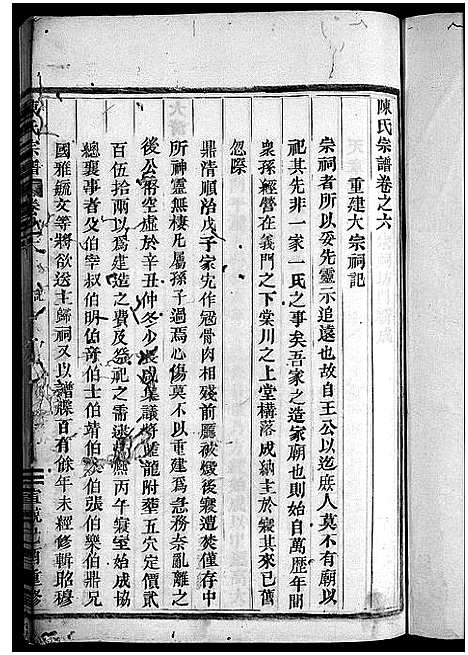 陳氏宗譜卷之六
重建大宗祠記
宗祠者所以妥先靈示追遠也故自王公以迄庶人莫不有廟以
祀其先非一家一氏之事矣吾家之造家廟也則始自萬歷年間
衆孫經營在義門之下棠川之上堂構落成納主於寢其來
忽際
鼎清順治戊子家宄作冦骨肉相殘前廳被燬後寢遭焚僅存中
所神靈無棲凡屬孫子過焉心傷莫不以重建為急務奈亂離之
後公帑空虛於辛丑仲冬少長咸集議將龍附葬五穴定價貳
百伍拾兩以為建造之費及祭祀之需丙午寢室始成協
總襄事者父伯宰叔伯明伯奇伯士伯靖伯恭伯張伯樂伯鼎兄
國雅毓文等將欲送主歸祠又以譜牒百有餘年未經修輯昭穆
氏宗譜
重修